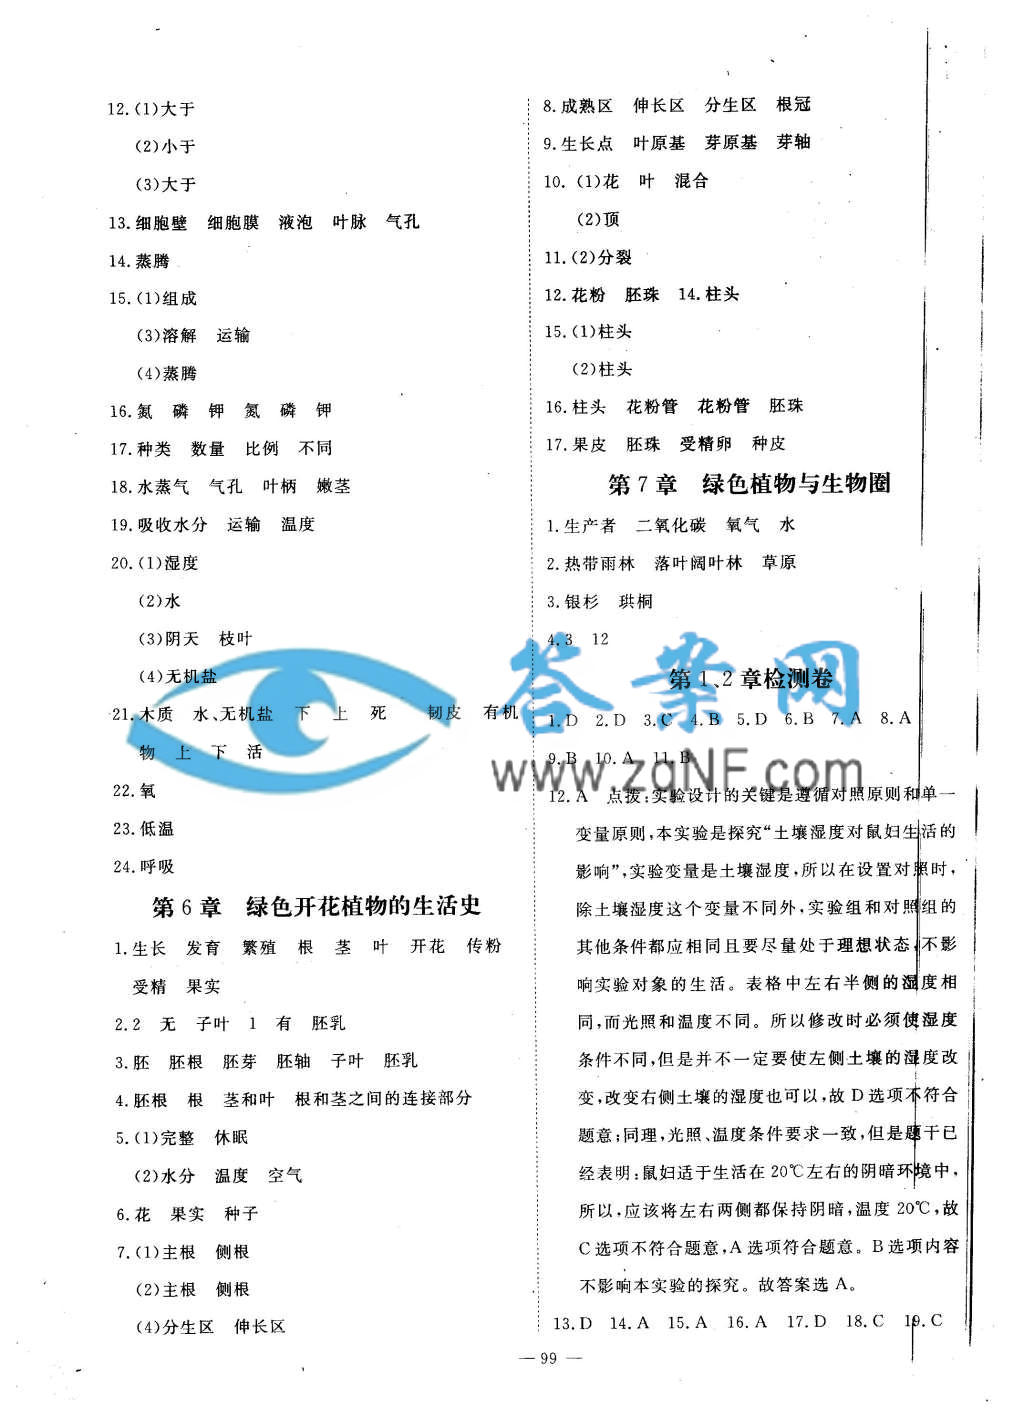 12.(1)大于
(2)小于
(3)大于
13.细胞壁 细胞膜 液泡 叶脉 气孔
14.蒸腾
15.(1)组成
(3)溶解 运输
(4)蒸腾
16.氮 磷 钾 氮 磷 钾
17.种类 数量 比例 不同
18.水蒸气 气孔 叶柄 嫩茎
19.吸收水分 运输 温度
20.(1)湿度
(2)水
(3)阴天 枝叶
(4)无机盐
21.木质 水、无机盐 下 上 死 韧皮 有机
物 上 下 活
22.氧
23.低温
24.呼吸
第6章 绿色开花植物的生活史
1.生长 发育 繁殖 根 茎 叶 开花 传粉
受精 果实
2.2 无 子叶 1 有 胚乳
3.胚 胚根 胚芽 胚轴 子叶 胚乳
4.胚根 根 茎和叶 根和茎之间的连接部分
5.(1)完整 休眠
(2)水分 温度 空气
6.花 果实 种子
7.(1)主根 侧根
(2)主根 侧根
(4)分生区 伸长区
8.成熟区 伸长区 分生区 根冠
9.生长点 叶原基 芽原基 芽轴
10.(1)花 叶 混合
(2)顶
11.(2)分裂
12.花粉 胚珠 14.柱头
15.(1)柱头
(2)柱头
16.柱头 花粉管 花粉管 胚珠
17.果皮 胚珠 受精卵 种皮
第7章 绿色植物与生物圈
1.生产者 二氧化碳 氧气 水
2.热带雨林 落叶阔叶林 草原
3.银杉 珙桐
4.3 12
答案网
www.zqNF.com
第1、2章检测卷
1.D 2.D 3.C 4.B 5.D 6.B 7.A 8.A
9.B 10.A 11.B
12.A 点拨:实验设计的关键是遵循对照原则和单一
变量原则,本实验是探究“土壤湿度对鼠妇生活的
影响”,实验变量是土壤湿度,所以在设置对照时,
除土壤湿度这个变量不同外,实验组和对照组的
其他条件都应相同且要尽量处于理想状态,不影
响实验对象的生活。表格中左右半侧的湿度相
同,而光照和温度不同。所以修改时必须使湿度
条件不同,但是并不一定要使左侧土壤的湿度改
变,改变右侧土壤的湿度也可以,故D选项不符合
题意;同理,光照、温度条件要求一致,但是题干已
经表明:鼠妇适于生活在20℃左右的阴暗环境中,
所以,应该将左右两侧都保持阴暗,温度20℃,故
C选项不符合题意,A选项符合题意。B选项内容
不影响本实验的探究。故答案选A。
13.D 14.A 15.A 16.A 17.D 18.C 19.C
— 99 —